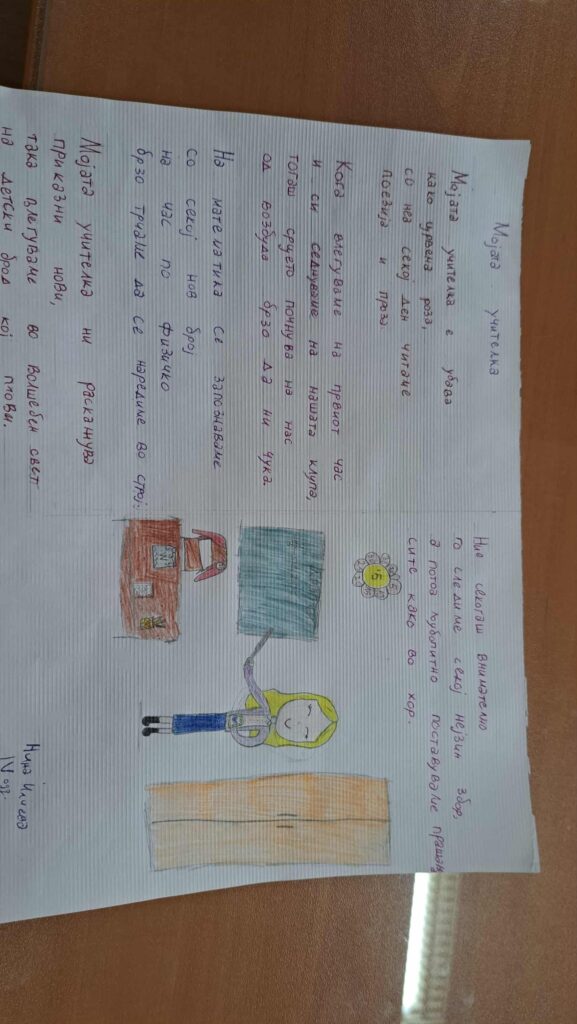 Мојата учителка
Мојата учителка е убава
како црвена роза,
со неа секој ден читаме
поезија и проза.
Кога влегуваме на првиот час
и си седнуваме на нашата клупа,
тогаш срцето почнува на нас
од возбуда брзо да ни чука.
На математика се запознаваме
со секој нов број
на час по физичко
брзо трчаме да се наредиме во строј.
Мојата учителка ни раскажува
приказни нови,
така влегуваме во волшебен свет
на детски брод кој плови.
Ние секогаш внимателно
го следиме секој нејзин збор,
а потоа љубопитно поставуваме
сите како во хор.
5
Нина Илиева
IV одд.